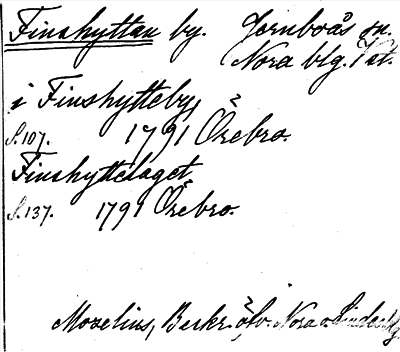 Finshyttan by. Jernboås sn.
Nora blg. Vst.
i Finshytteby,
S. 107. 1791 Örebro.
Finshyttelaget,
S. 137. 1791 Örebro.
Mozelius, Beskr. öfv. Nora o. Linde